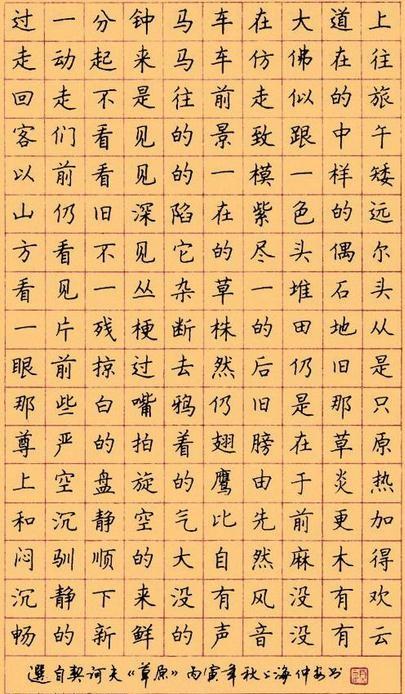 过一分钟马车在大道上
走动起来马车仿佛在往
回走不是往前走似的旅
客们看见的景致跟中午
以前看见的一模一样矮
山仍旧深陷在紫色的远
方看不见它的尽头偶尔
看见一丛杂草一堆石头
一片残梗断株的田地从
眼前掠过去然后仍旧是
那些白嘴鸦仍旧是那只
尊严的拍着翅膀在草原
上空盘旋的鹰由于炎热
和沉静空气比先前更加
闷驯顺的大自然麻木得
沉静下来没有风没有欢
畅的新鲜的声音没有云
选自契诃夫《草原》丙寅年秋上海仲安书